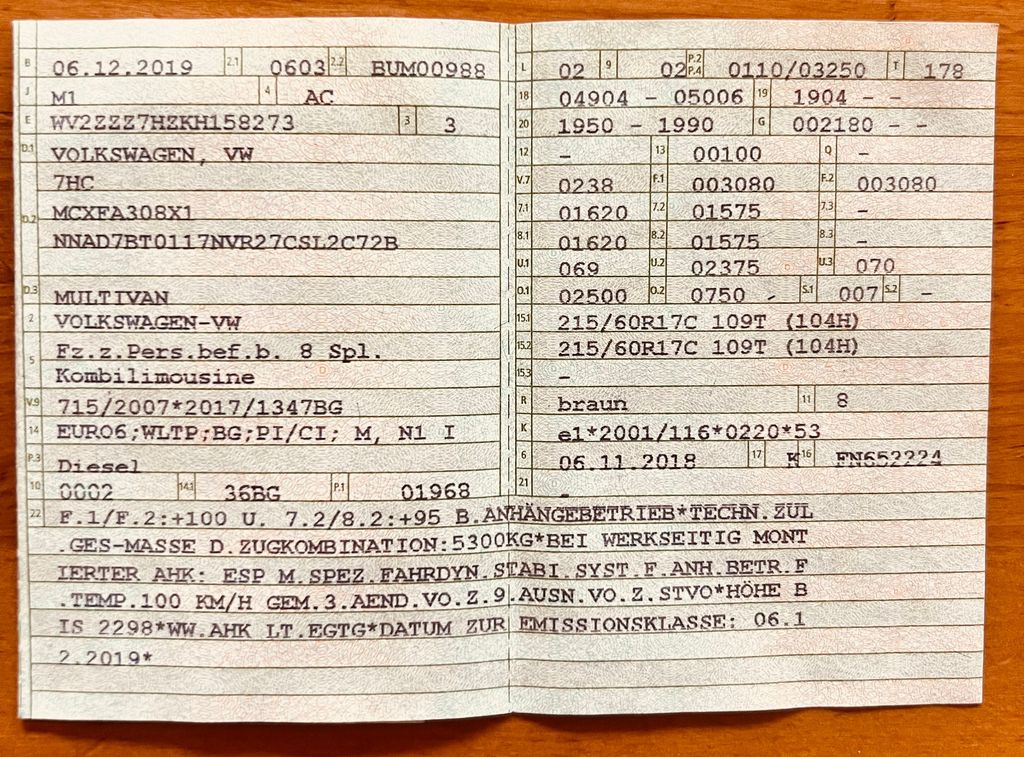 B 06.12.2019 2.1 0603 2.2 BUM00988
J M1 4 AC
E WV2ZZZ7HZKH158273 3 3
D.1 VOLKSWAGEN, VW
7HC
D.2 MCXFA308X1
NNAD7BT0117NVR27CSL2C72B
D.3 MULTIVAN
2 VOLKSWAGEN-VW
5 Fz.z.Pers.bef.b. 8 Spl.
Kombilimousine
V.9 715/2007*2017/1347BG
14 EURO6;WLTP;BG;PI/CI; M, N1 I
P.3 Diesel
10 0002 14.1 36BG P.1 01968
L 02 9 02 P.2 P.4 0110/03250 T 178
18 04904 - 05006 19 1904 - -
20 1950 - 1990 G 002180 - -
12 - 13 00100 Q -
V.7 0238 F.1 003080 F.2 003080
7.1 01620 7.2 01575 7.3 -
8.1 01620 8.2 01575 8.3 -
U.1 069 U.2 02375 U.3 070
O.1 02500 O.2 0750 - S.1 007 S.2 -
15.1 215/60R17C 109T (104H)
15.2 215/60R17C 109T (104H)
15.3 -
R braun 11 8
K e1*2001/116*0220*53
6 06.11.2018 17 K 16 FN652224
21 -
22 F.1/F.2:+100 U. 7.2/8.2:+95 B.ANHÄNGEBETRIEB*TECHN.ZUL
.GES-MASSE D.ZUGKOMBINATION:5300KG*BEI WERKSEITIG MONT
IERTER AHK: ESP M.SPEZ.FAHRDYN.STABI.SYST.F.ANH.BETR.F
.TEMP.100 KM/H GEM.3.AEND.VO.Z.9.AUSN.VO.Z.STVO*HÖHE B
IS 2298*WW.AHK LT.EGTG*DATUM ZUR EMISSIONSKLASSE: 06.1
2.2019*